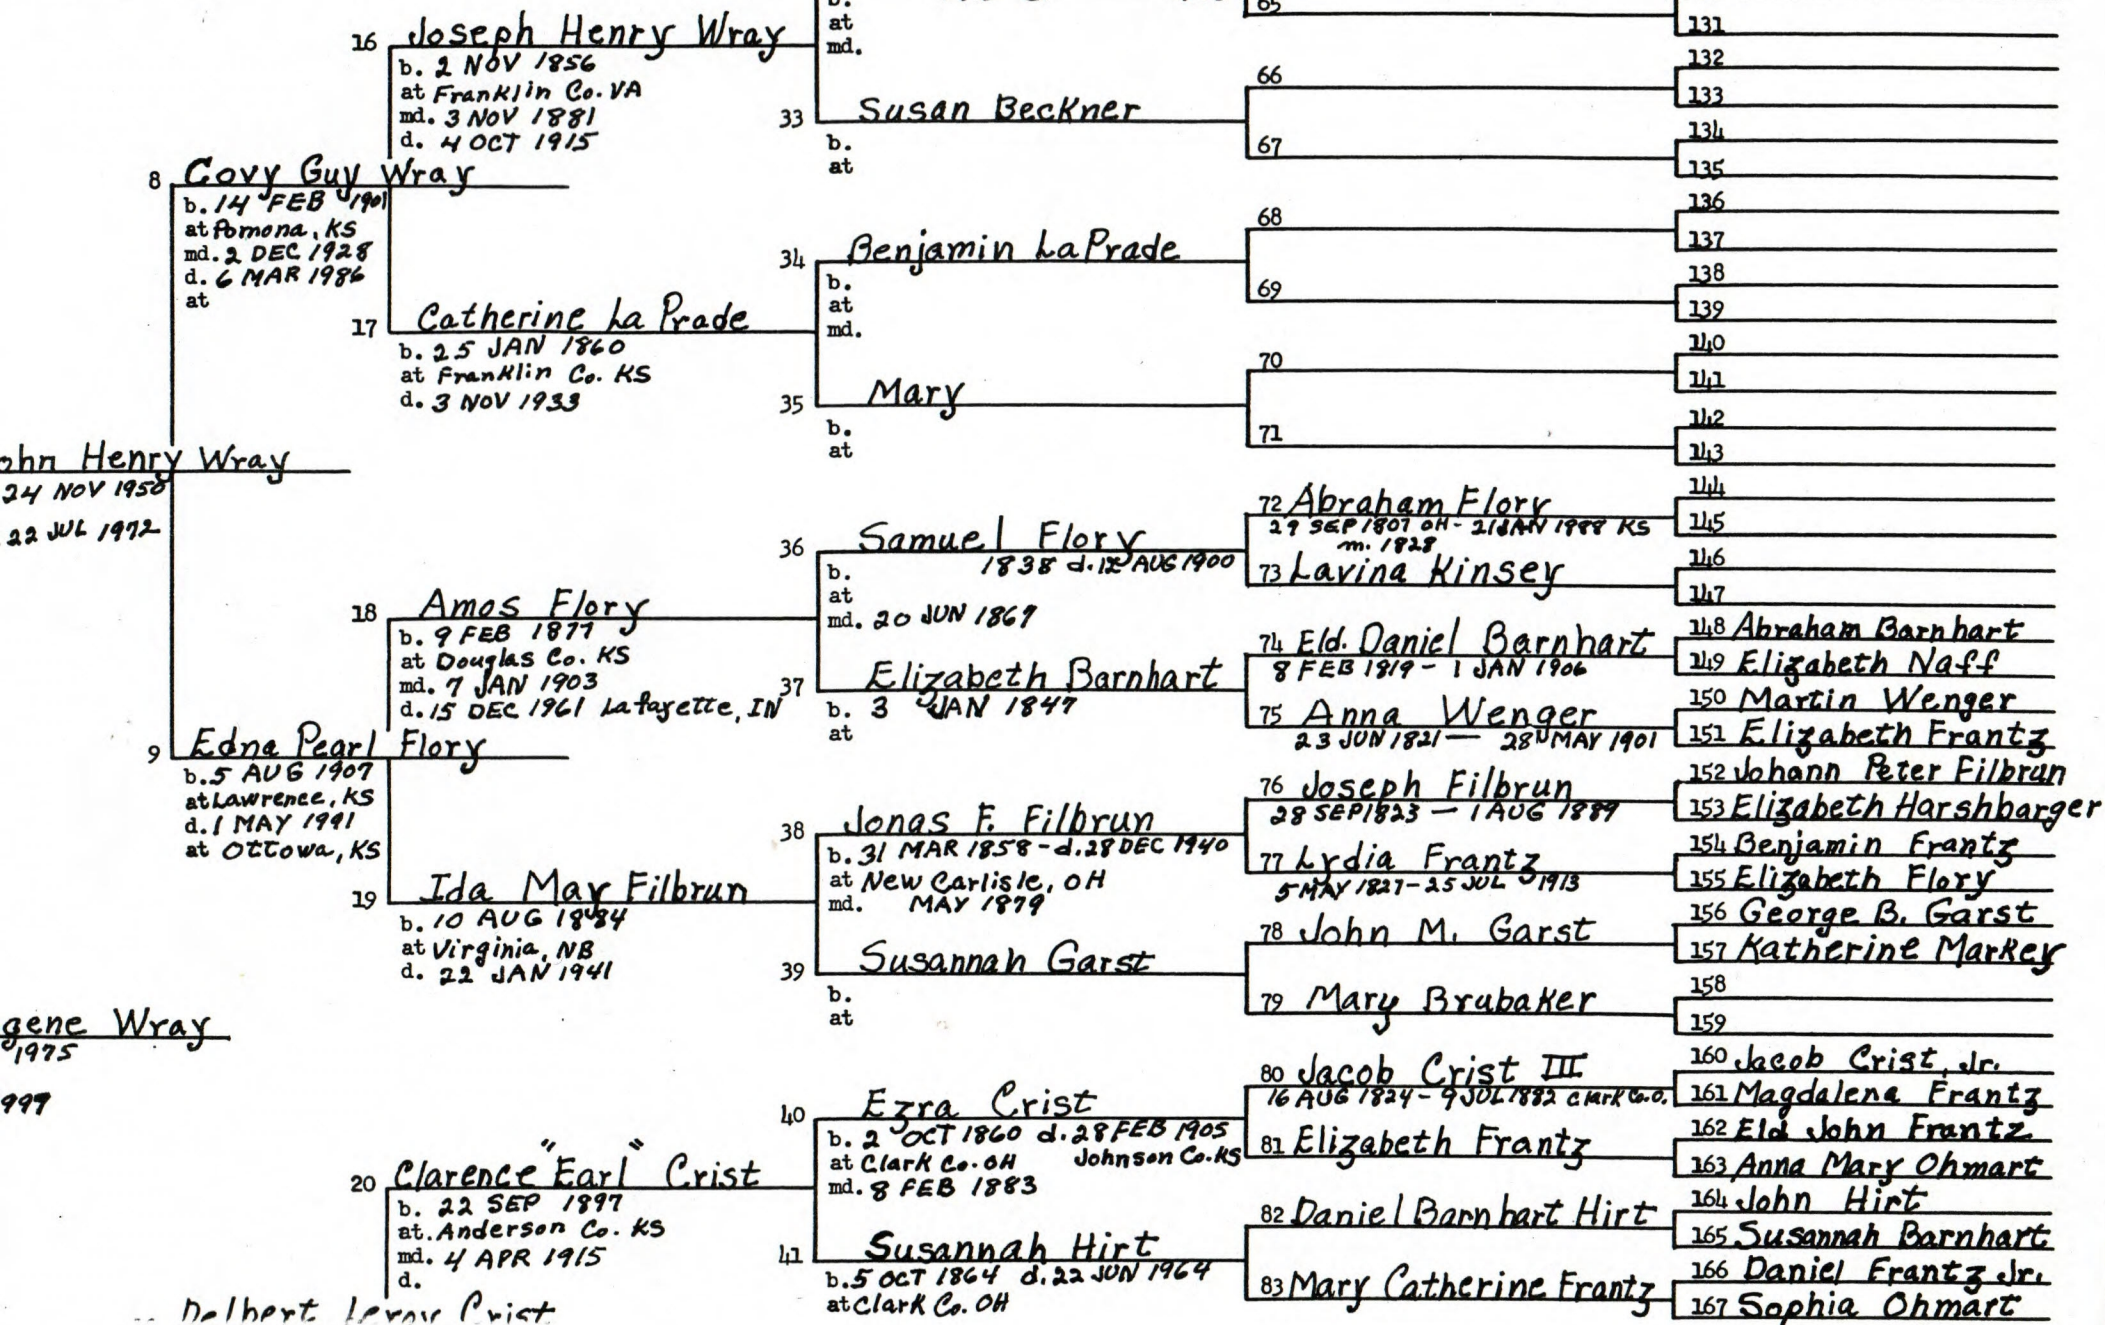 16 Joseph Henry Wray
b. 2 NOV 1856
at Franklin Co. VA
md. 3 NOV 1881
d. 4 OCT 1915
8 Covy Guy Wray
b. 14 FEB 1901
at Pomona, KS
md. 2 DEC 1928
d. 6 MAR 1986
at
17 Catherine La Prade
b. 25 JAN 1860
at Franklin Co. KS
d. 3 NOV 1933
ohn Henry Wray
24 NOV 1950
22 JUL 1972
18 Amos Flory
b. 9 FEB 1877
at Douglas Co. KS
md. 7 JAN 1903
d. 15 DEC 1961 Lafayette, IN
9 Edna Pearl Flory
b. 5 AUG 1907
at Lawrence, KS
d. 1 MAY 1991
at Ottowa, KS
19 Ida May Filbrun
b. 10 AUG 1884
at Virginia, NB
d. 22 JAN 1941
gene Wray
1975
999
20 Clarence "Earl" Crist
b. 22 SEP 1897
at. Anderson Co. KS
md. 4 APR 1915
d.
Delbert Leroy Crist
b.
at
md.
33 Susan Beckner
b.
at
34 Benjamin LaPrade
b.
at
md.
35 Mary
b.
at
36 Samuel Flory
b. 1838 d. AUG 1900
at
md. 20 JUN 1867
37 Elizabeth Barnhart
b. 3 JAN 1847
at
38 Jonas F. Filbrun
b. 31 MAR 1858 - d. 28 DEC 1940
at New Carlisle, OH
md. MAY 1879
39 Susannah Garst
b.
at
40 Ezra Crist
b. 2 OCT 1860 d. 28 FEB 1905
at Clark Co. OH Johnson Co. KS
md. 8 FEB 1883
41 Susannah Hirt
b. 5 OCT 1864 d. 22 JUN 1964
at Clark Co. OH
65
66
67
68
69
70
71
72 Abraham Flory
29 SEP 1807 OH - 21 JAN 1888 KS
m. 1828
73 Lavina Kinsey
74 Eld. Daniel Barnhart
8 FEB 1819 - 1 JAN 1906
75 Anna Wenger
23 JUN 1821 — 28 MAY 1901
76 Joseph Filbrun
28 SEP 1823 — 1 AUG 1889
77 Lydia Frantz
5 MAY 1827 - 25 JUL 1913
78 John M. Garst
79 Mary Brubaker
80 Jacob Crist III
16 AUG 1824 - 9 JUL 1882 Clark Co. O.
81 Elizabeth Frantz
82 Daniel Barnhart Hirt
83 Mary Catherine Frantz
131
132
133
134
135
136
137
138
139
140
141
142
143
144
145
146
147
148 Abraham Barnhart
149 Elizabeth Naff
150 Martin Wenger
151 Elizabeth Frantz
152 Johann Peter Filbrun
153 Elizabeth Harshbarger
154 Benjamin Frantz
155 Elizabeth Flory
156 George B. Garst
157 Katherine Markey
158
159
160 Jacob Crist, Jr.
161 Magdalena Frantz
162 Eld John Frantz
163 Anna Mary Ohmart
164 John Hirt
165 Susannah Barnhart
166 Daniel Frantz Jr.
167 Sophia Ohmart